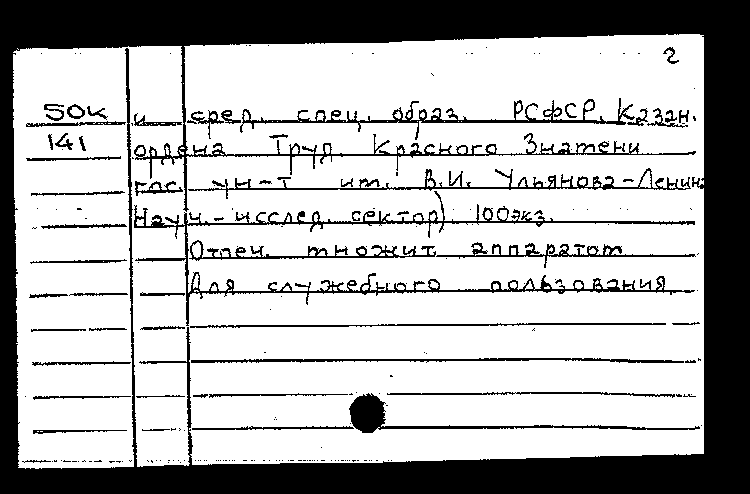 2
50к и сред. спец. образ. РСФСР. Казан.
141 ордена Труд. Красного Знамени
гос. ун-т им. В.И. Ульянова-Ленина
Науч.-исслед. сектор). 100экз.
Отпеч. множит. аппаратом
Для служебного пользования.